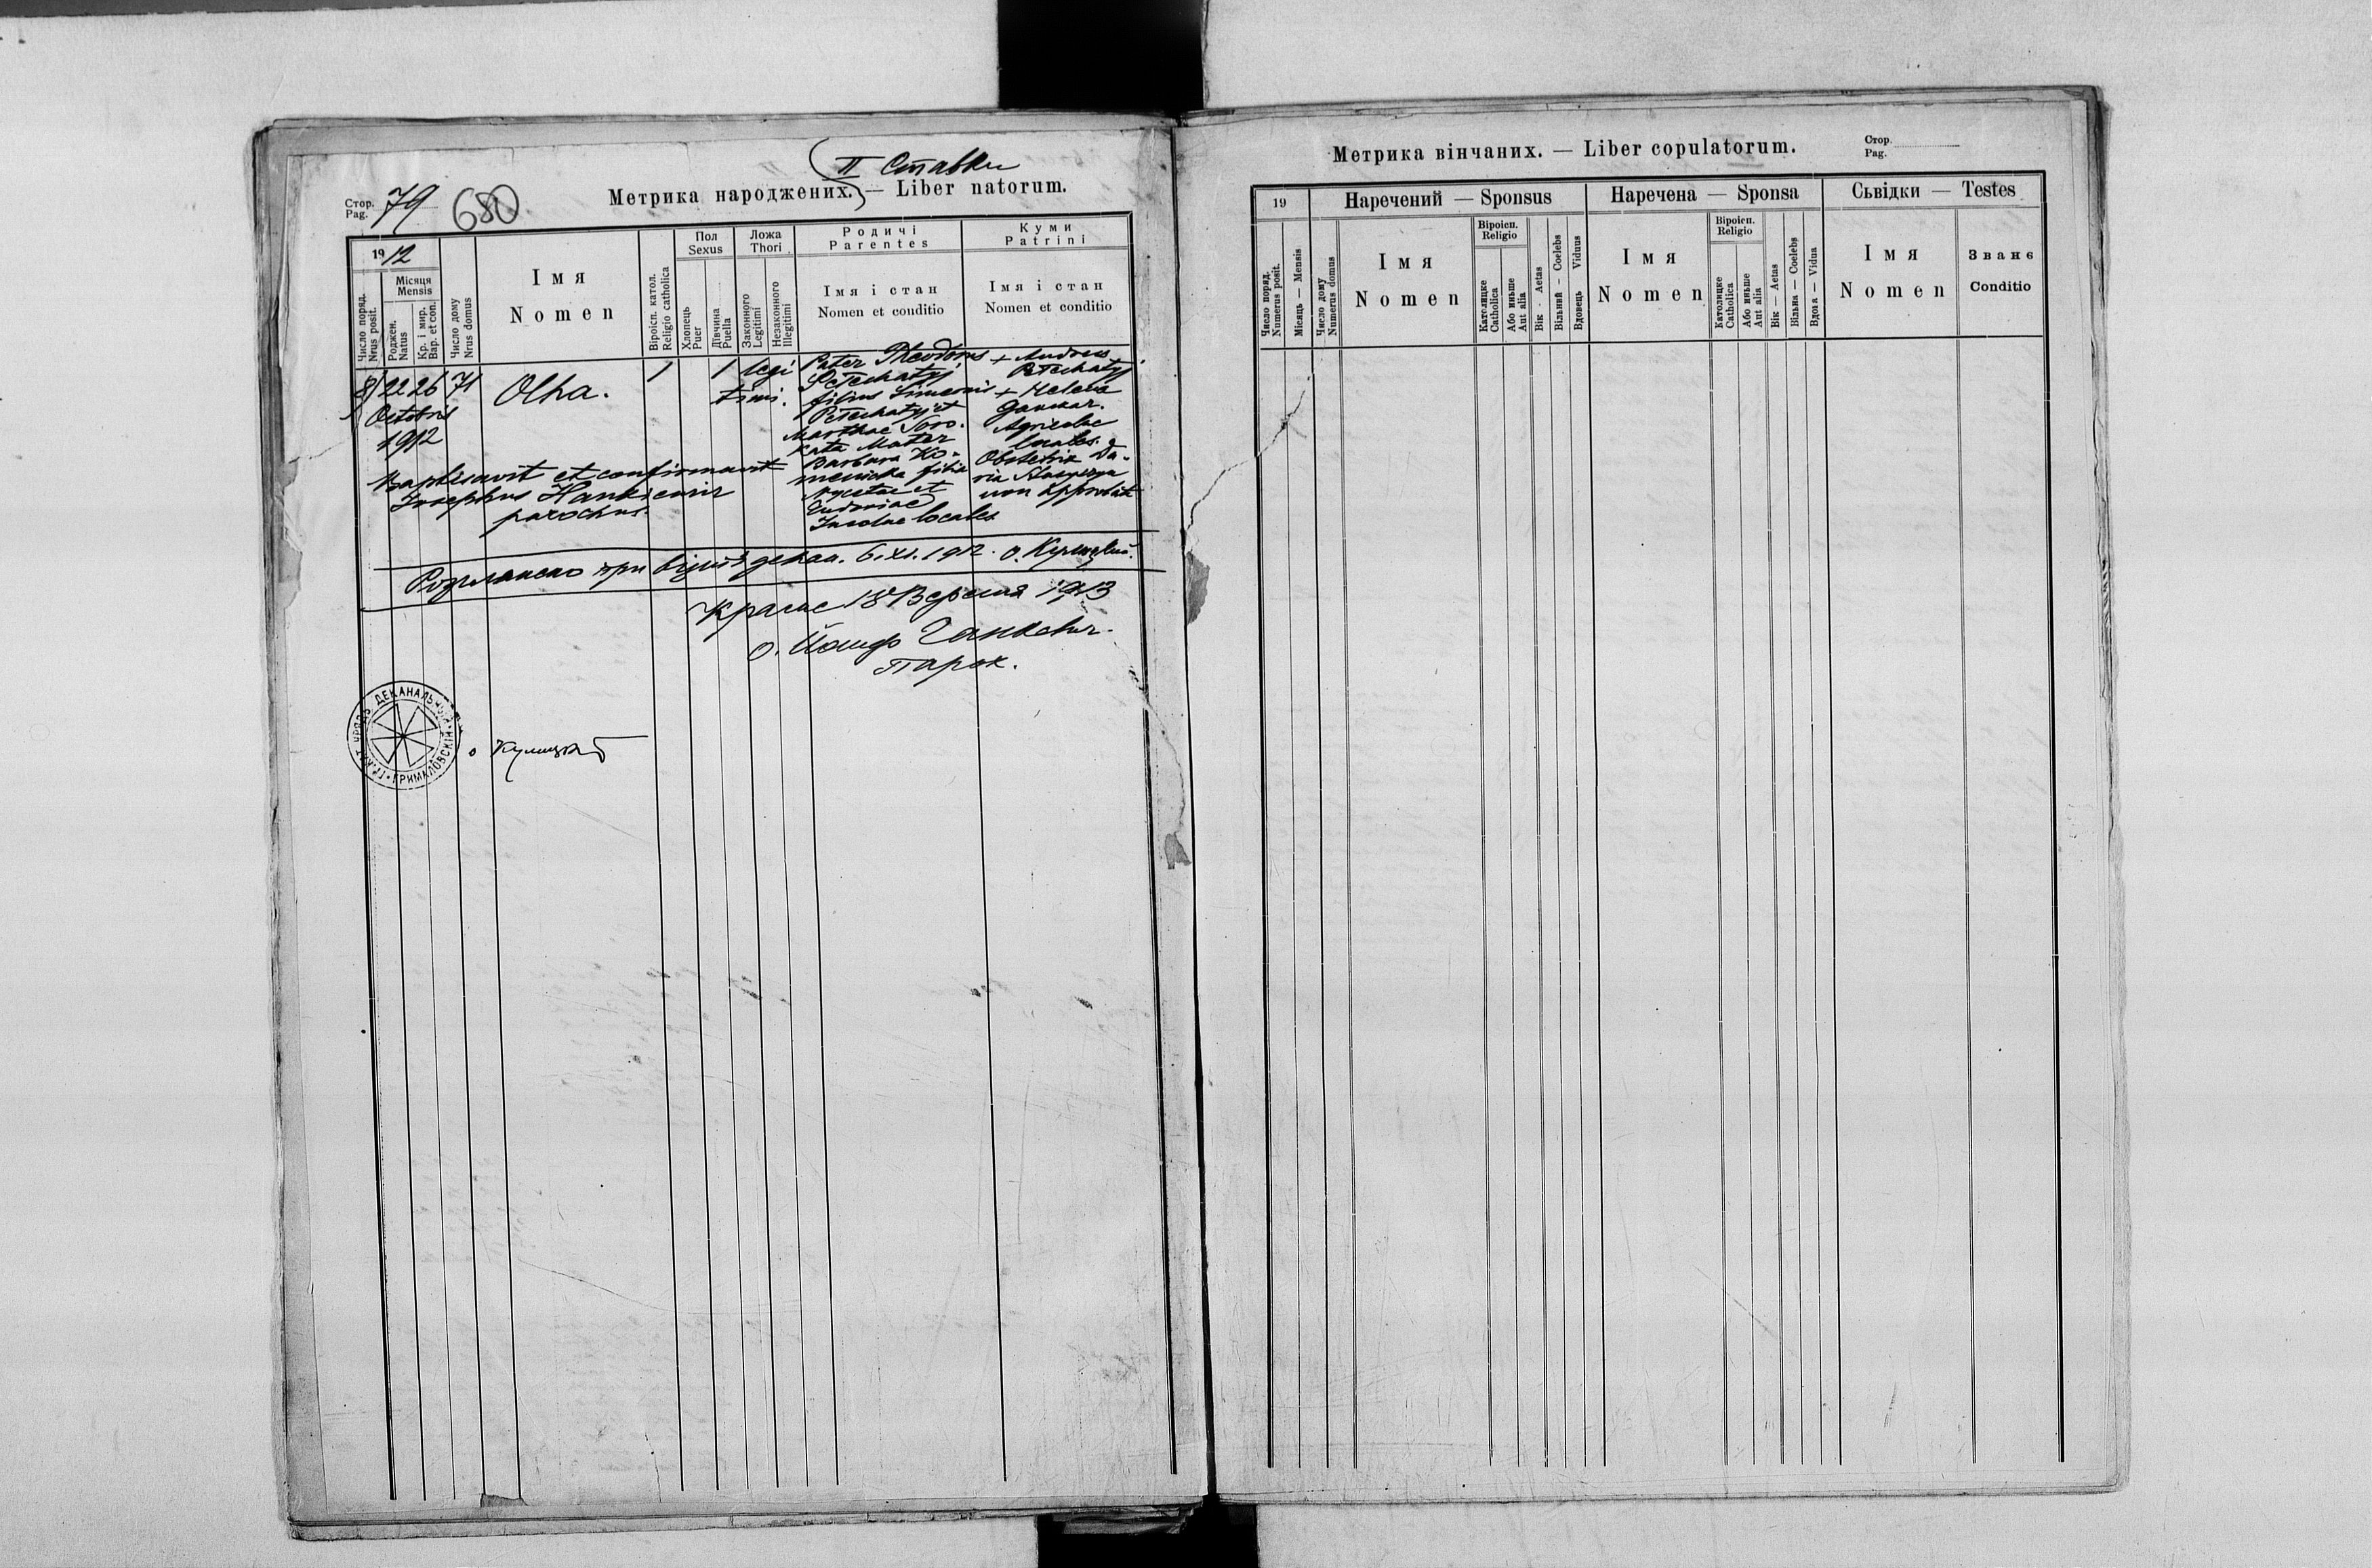 II Ставки
Стор.
Pag. 79 680
Метрика народжених. — Liber natorum.
1912
Число поряд.
Nrus posit.
Місяця
Mensis
Роджен.
Natus
Кр. і мир.
Bap. et con.
Число дому
Nrus domus
Імя
Nomen
Віроісп. катол.
Religio catholica
Пол
Sexus
Хлопець
Puer
Дівчина
Puella
Ложа
Thori
Законного
Legitimi
Незаконного
Illegitimi
Родичі
Parentes
Імя і стан
Nomen et conditio
Куми
Patrini
Імя і стан
Nomen et conditio
8) 22 26 71 Olha. 1 1 legi
timi.
Octobris
1912
Baptisavit et confirmavit
Josephus Hankiewicz
parochus.
Pater Theodorus
Petechatyj
filius Simeonis
Petechatyj et
Marthae Soro-
kata Mater
Barbara Ko-
filia
et
Eudoniae
Incolae locales
+ Andreas
Petechatyj
+ Helena
Agricolae
locales.
Obstetrix Da-
ria
non approbata
Розглянено при візиті декан. 6.XI.1912. о. Кулицкий.
Красне 18 Вересня 1913
о. Йосиф Ганкевич.
Парох.
ДЕКАНАЛЬНЫЙ ГРИМАЛОВСКІЙ ГР.КАТ. УРЯДЪ
о Кулицкий
Метрика вінчаних. — Liber copulatorum.
Стор.
Pag.
19
Число поряд.
Numerus posit.
Місяць — Mensis
Число дому
Numerus domus
Наречений — Sponsus
Імя
Nomen
Віроісп.
Religio
Католицке
Catholica
Або иньше
Aut alia
Вік - Aetas
Вільний - Coelebs
Вдовець Viduus
Наречена — Sponsa
Імя
Nomen
Віроісп.
Religio
Католицке
Catholica
Або иньше
Aut alia
Вік — Aetas
Вільна — Coelebs
Вдова — Vidua
Сьвідки — Testes
Імя
Nomen
Званє
Conditio